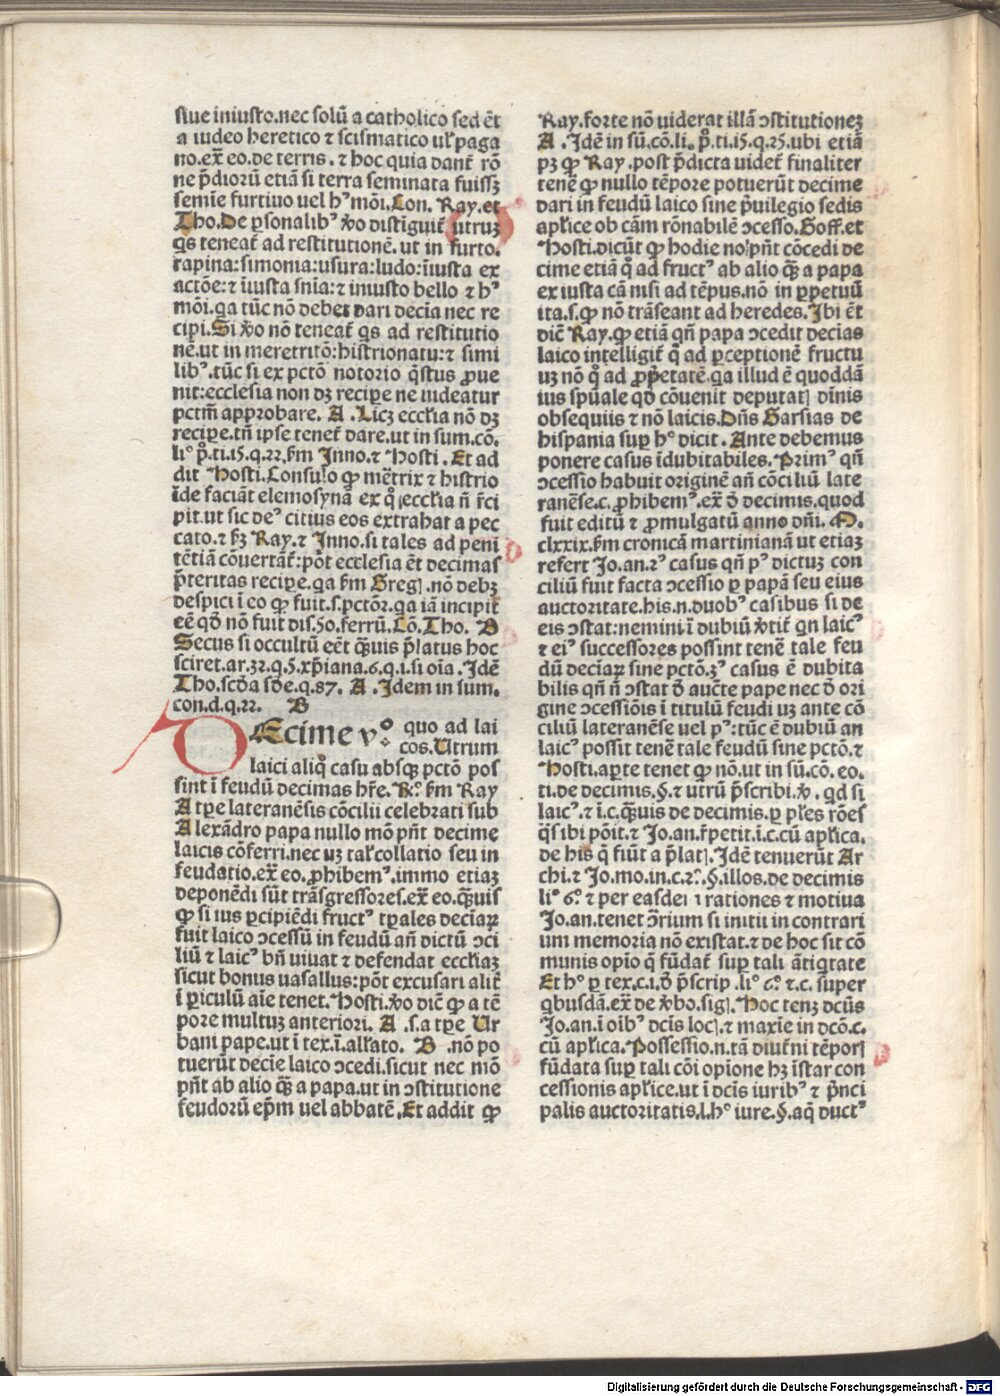 siue iniusto.nec solū a catholico sed ēt
a iudeo heretico ⁊ scismatico ul' paga
no.ex̄ eo.de terris. ⁊ hoc quia dant᷑ rō
ne p̄diorū etiā si terra seminata fuissꝫ
semīe furtiuo uel hꝰ mōi.Con. Ray.et
Tho.De ꝑsonalibꝰ ꝟo distīguit᷑ utruꝫ
qs teneat᷑ ad restitutionē.ut in furto.
rapina:simonia:usura:ludo:īiusta ex
actōe:⁊ īiusta sn̄ia:⁊ iniusto bello ⁊ hꝰ
mōi.qa tūc nō debet dari decīa nec re
cipi.Si ꝟo nō teneat᷑ qs ad restitutio
nē.ut in meretritō:histrionatu:⁊ simi
libꝰ.tūc si ex pctō notorio q̄stus ꝓue
nit:ecclesia non dꝫ recipe ne uideatur
pctm̄ approbare. A .Licꝫ eccl'ia nō dꝫ
recipe.tn̄ ipse tenet᷑ dare.ut in sum.cō.
li° p̄.ti.15.q.22.ẜm Inno.⁊ Hosti .Et ad
dit Hosti.Consulo ꝙ mēr̄trix ⁊ histrio
īde faciāt elemosynā ex q̊ eccl'ia n̄ r̄ci
pit.ut sic deꝰ citius eos extrahat a pec
cato.⁊ ẜꝫ Ray.⁊ Inno.si tales ad peni
tētiā cōuertāt᷑:pōt ecclesia ēt decimas
p̄teritas recipe.qa ẜm Gregꝭ.nō debꝫ
despici ī eo ꝙ fuit.s.pctōꝛ.qa iā incipit
eē qd̄ nō fuit dis.50.ferrū.Cō.Tho. B
Secus si occultū eēt q̄uis p̄latus hoc
sciret.ar.32.q.5.xp̄iana.6.q.i.si oīa. Idē
Tho.scd̄a sd̄e.q.87. A .Idem in sum.
con.d.q.22. B
DEcime v° quo ad lai
cos.Utrum
laici aliq̊ casu absqꝫ pctō pos
sint ī feudū decimas hr̄e. ℞.° ẜm Ray
A tpe lateranēsis cōcilii celebrati sub
Alexādro papa nullo mō pn̄t decime
laicis cōferri.nec uꝫ tal' collatio seu in
feudatio.ex̄ eo.ꝓhibemꝰ.immo etiaꝫ
deponēdi sūt trāsgressores.ex̄ eo.q̄uis
ꝙ si ius ꝑcipiēdi fructꝰ tpales decīaꝝ
fuit laico ɔcessū in feudū an̄ dictū ɔci
liū ⁊ laicꝰ bn̄ uiuat ⁊ defendat eccl'iaꝫ
sicut bonus uasallus:pōt excusari alit᷑
ī ꝑiculū aīe tenet.Hosti.ꝟo dic̄ ꝙ a tē
pore multuꝫ anteriori. A .s.a tpe Ur
bani pape.ut ī tex.ī.all'ato. B .nō po
tuerūt decīe laico ɔcedi.sicut nec mō
pn̄t ab alio q̄ꝫ a papa.ut in ɔstitutione
feudorū ep̄m uel abbatē.Et addit ꝙ
Ray.forte nō uiderat illā ɔstitutioneꝫ
A .Idē in sū.cō.li. p̄.ti.15.q.25.ubi etiā
pꝫ ꝙ Ray.post p̄dicta uidet᷑ finaliter
tenē ꝙ nullo tēpore potuerūt decime
dari in feudū laico sine p̄uilegio sedis
apl'ice ob cām rōnabilē ɔcesso.Goff.et
Hosti.dicūt ꝙ hodie no pn̄t cōcedi de
cime etiā q̊ ad fructꝰ ab alio q̄ꝫ a papa
ex iusta cā nisi ad tēpus.nō in ꝑpetuū
ita.s.ꝙ nō trāseant ad heredes.Ibi ēt
dic̄ Ray.ꝙ etiā qn̄ papa ɔcedit decīas
laico intelligit᷑ q̊ ad ꝑceptionē fructu
uꝫ nō q̊ ad ꝓp̄etatē.qa illud ē quoddā
ius spūale qd̄ cōuenit deputatꝭ dīnis
obsequiis ⁊ nō laicis.Dn̄s Garsias de
hispania sup h° dicit . Ante debemus
ponere casus īdubitabiles.Primꝰ qn̄
ɔcessio habuit originē an̄ cōciliū late
ranēse.c.ꝓhibemꝰ.ex̄ ð decimis.quod
fuit editū ⁊ ꝓmulgatū anno dn̄i. M.
clxxix.ẜm cronicā martinianā ut etiaꝫ
refert Jo.an.2ꝰ casus qn̄ pꝰ dictuꝫ con
ciliū fuit facta ɔcessio ꝑ papā seu eius
auctoritate.his.n.duobꝰ casibus si de
eis ɔstat:nemini ī dubiū ꝟtit᷑ qn laicꝰ
⁊ eiꝰ successores possint tenē tale feu
dū decīaꝝ sine pctō.3ꝰ casus ē dubita
bilis qn̄ n̄ ɔstat ð auct̄e pape nec ð ori
gine ɔcessiōis ī titulū feudi uꝫ ante cō
ciliū lateranēse uel pꝰ:tūc ē dubiū an
laicꝰ possit tenē tale feudū sine pctō.⁊
Hosti.aꝑte tenet ꝙ nō.ut in sū.cō. eo.
ti.de decimis.§.⁊ utrū p̄scribi.ꝟ. qd si
laicꝰ.⁊ ī.c.q̄uis de decimis.ꝑ pl'es rōes
q̄s ibi pōit.⁊ Jo.an.r̄petit.ī.c.cū apl'ica.
de his q̄ fiūt a p̄latꝭ.Idē tenuerūt Ar
chi.⁊ Jo.mo.in.c.2°.§.illos.de decimis
li° 6° ⁊ per easdeꝫ rationes ⁊ motiua
Jo.an.tenet ɔ̄rium si initii in contrari
um memoria nō existat.⁊ de hoc sit cō
munis opīo q̄ fūdat᷑ sup tali ātiqtate
Et h° ꝑ tex.c.i.ð p̄scrip .li° 6° ⁊.c. super
qbusdā.ex̄ de ꝟbo.sigꝭ.Hoc tenꝫ dc̄us
Jo.an.ī oībꝰ dc̄is locꝭ.⁊ maxīe in dcō.c.
cū apl'ica.Possessio.n.tā diut᷑ni tēporꝭ
fūdata sup tali cōi opīone hꝫ īstar con
cessionis apl'ice.ut ī dc̄is iuribꝰ ⁊ p̄nci
palis auctoritatis.l.h° iure.§.aq̄ ductꝰ
Digitalisierung gefördert durch die Deutsche Forschungsgemeinschaft - DFG